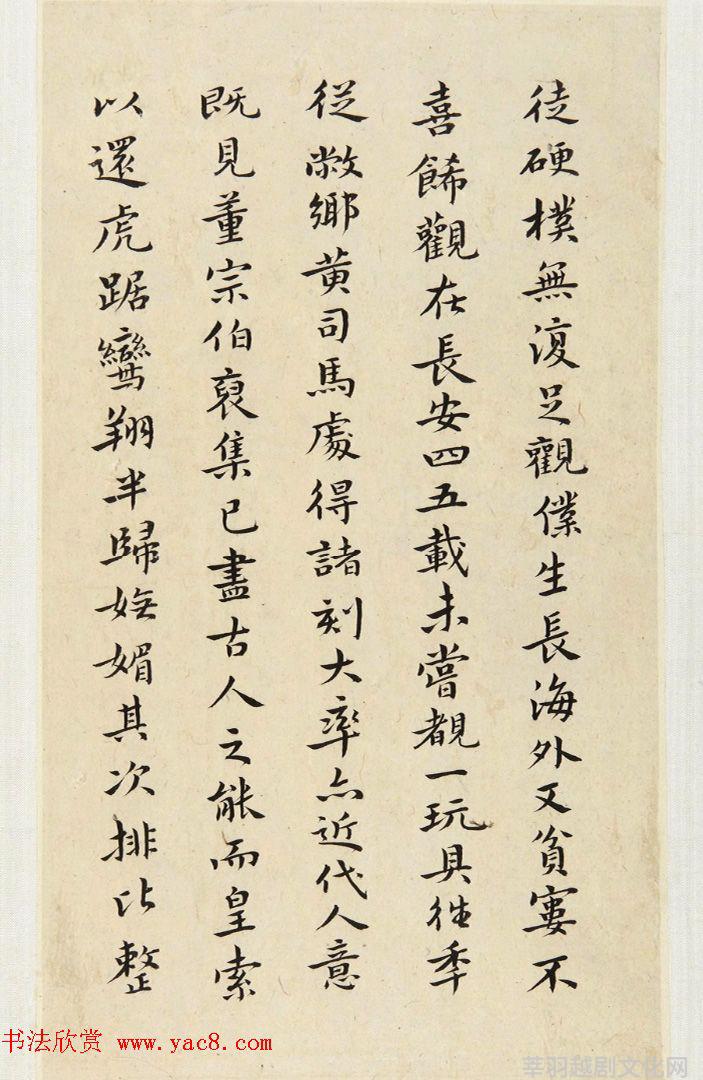 徒硬樸無復足觀僕生長海外又貧寠不
喜餙觀在長安四五載未嘗覩一玩具往季
從敝鄉黄司馬處得諸刻大率亦近代人意
既見董宗伯裒集已盡古人之能而皇索
以還虎踞鸞翔半歸嫵媚其次排比整
书法欣赏 www.yac8.com
莘羽越剧文化网